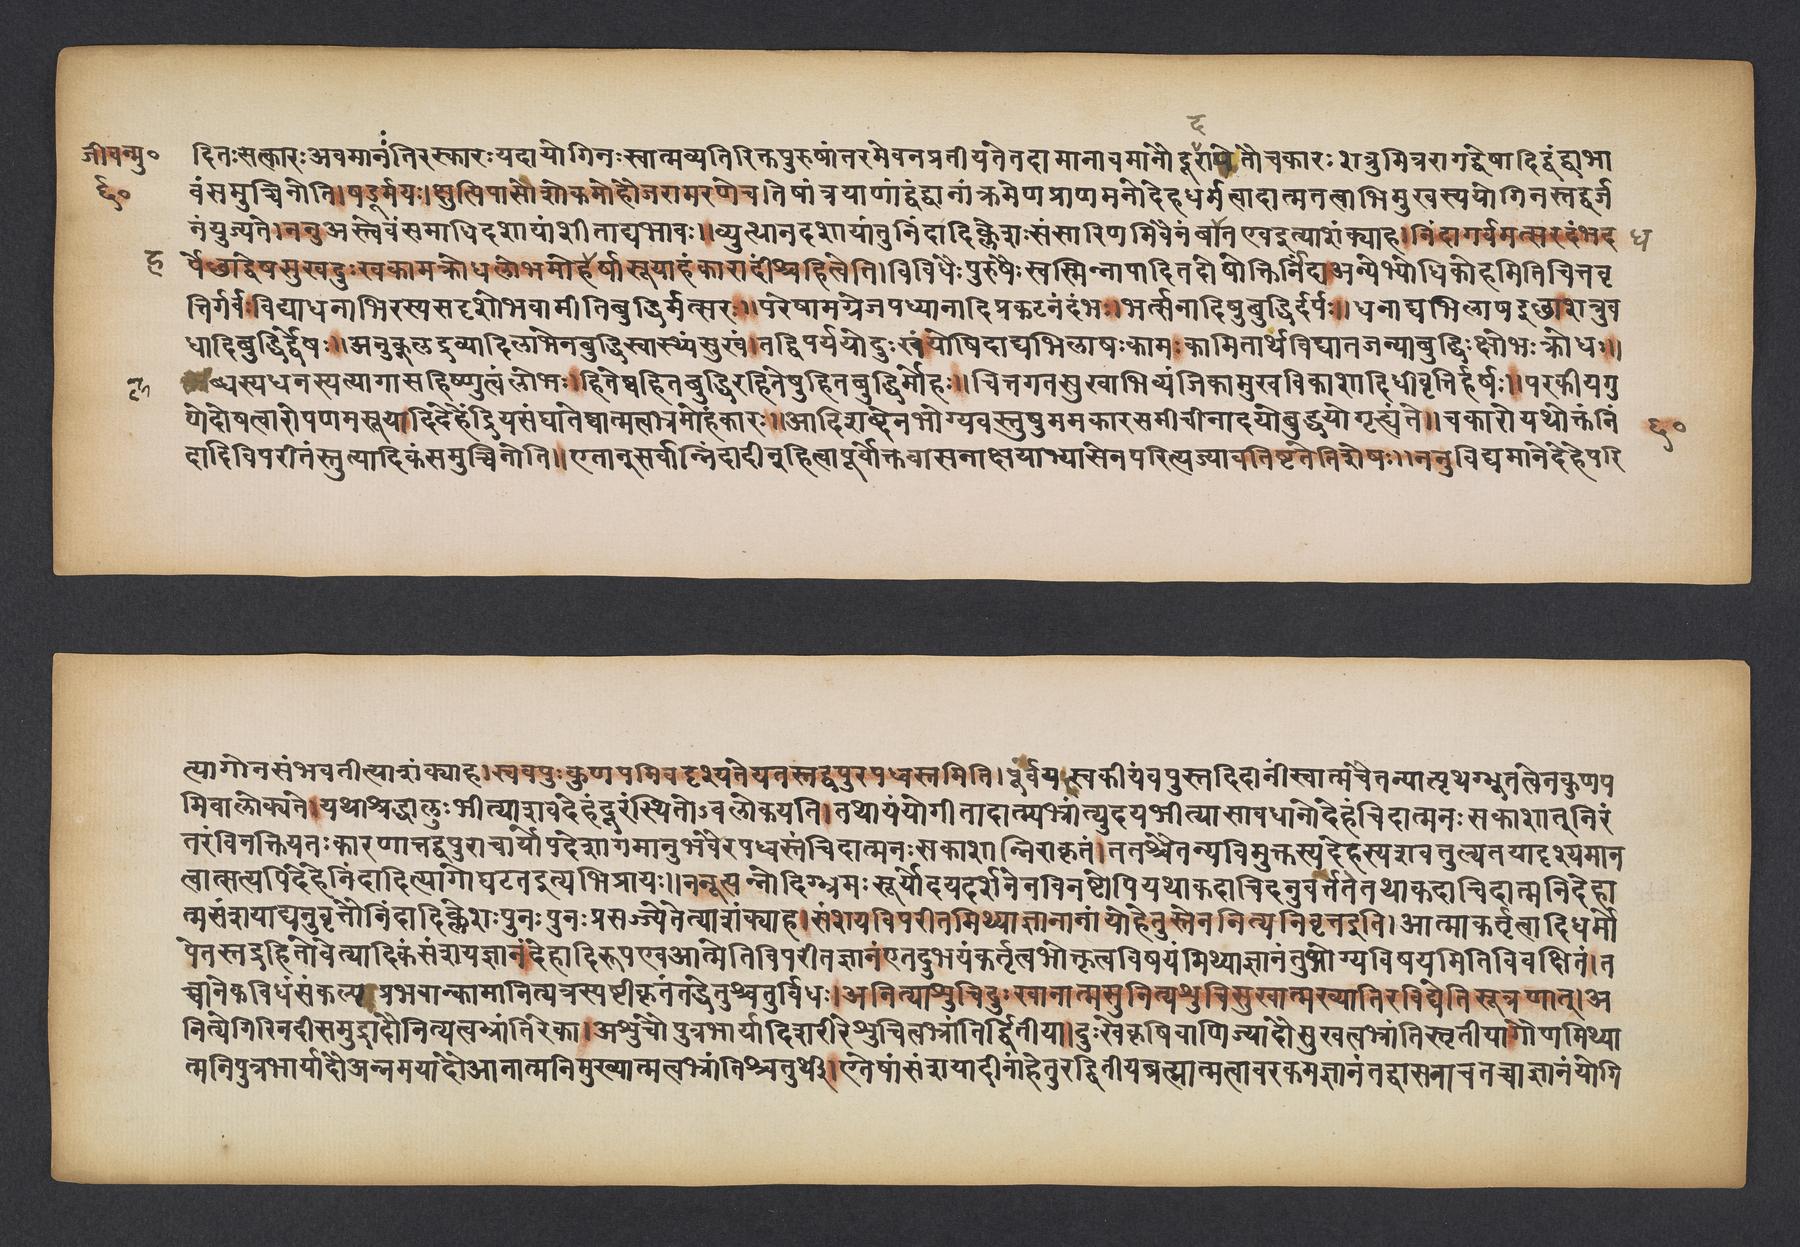 जीवन्मु॰
६॰
द
दितःसत्कारःअवमानंतिरस्कारःयदायोगिनःस्वात्मव्यतिरिक्तपुरुषांतरमेवनप्रतीयतेतदामानावमानौदूरापेतौचकारःशत्रुमित्ररागद्वेषादिद्वंद्वाभा
वंसमुच्चिनोति।षडूर्मयः।क्षुत्पिपासेशोकमोहौजरामरणेच।तेषांत्रयाणांद्वंद्वानांक्रमेणप्राणमनोदेहधर्मत्वादात्मतत्वाभिमुखस्ययोगिनस्तद्वर्ज
नंयुज्यते।ननुअस्त्वेवंसमाधिदशायांशीताद्यभावः।।व्युत्थानदशायांतुनिंदादिक्लेशःसंसारिणमिवैनंबाधतएवइत्याशंक्याह।निंदागर्वमत्सरदंभद
ध
ह
र्पेच्छाद्वेषसुखदुःखकामक्रोधलोभमोहहर्षासूयाहंकारादींश्चहित्वेति।विविधैःपुरुषैःस्वस्मिन्नापादितदोषोक्तिर्निंदा।अन्येभ्योधिकोहमितिचित्तवृ
त्तिर्गर्वःविद्याधनाभिरस्यसदृशोभवामीतिबुद्धिर्मत्सरः।।परेषामग्रेजपध्यानादिप्रकटनंदंभः।भर्त्सनादिषुबुद्धिर्दर्पः।।धनाद्यभिलाषइछाशत्रुव
धादिबुद्धिर्द्वेषः।।अनुकुलद्रव्यादिलाभेनबुद्धिस्वास्थ्यंसुखं।तद्विपर्ययोदुःखंयोषिदाद्यभिलाषःकामःकामितार्थविघातजन्याबुद्धिःक्षोभःक्रोधः।।
ब्धस्यधनस्यत्यागासहिष्णुत्वंलोभः।हितेष्वहितबुद्धिरहितेषुहितबुद्धिर्मोहः।।चित्तगतसुखाभिव्यंजिकामुखविकाशादिधीवृत्तिर्हर्षः।।परकीयगु
णेदोषत्वारोपणमसूयादिदेहेंद्रियसंघातेष्वात्मत्वात्रमोहंकारः।।आदिशब्देनभोग्यवस्तुषुममकारसमीचीनादयोबुद्धयोगृह्यंते।।चकारोयथोक्तनिं
६॰
दादिविपरीतंस्तुत्यादिकंसमुच्चिनोति।।एतान्सर्वान्निंदादीन्हित्वापूर्वोक्तवासनाक्षयाभ्यासेनपरित्यज्यावतिष्टतेतिशेषः।।ननुविद्यमानेदेहेपरि
त्यागोनसंभवतीत्याशंक्याह।स्ववपुःकुणपमिवदृश्यतेयतस्तद्वपुरपध्वस्तमिति।पूर्वंयत्स्वकीयंवपुस्तदिदानींस्वात्मचैतन्यात्पृथग्भूतत्वेनकुणप
मिवालोक्यते।यथाश्रद्धालुःभीत्याशवदेहंदूरंस्थितोऽवलोकयति।तथायंयोगीतादात्म्यभ्रांत्युदयभीत्यासावधानोदेहंचिदात्मनःसकाशात्निरं
तरंविनक्तियतःकारणात्तद्वपुराचार्योपदेशागमानुभवैरपध्वस्तंचिदात्मनःसकाशान्निराकृतं।ततश्चैतन्यविमुक्तस्यदेहस्यशवतुल्यतयादृश्यमान
त्वात्सत्यपिदेहेनिंदादित्यागोघटतइत्यभिप्रायः।।ननूत्पन्नोदिग्भ्रमःसूर्योदयदर्शनेनविनष्टोपियथाकदाचिदनुवर्त्ततेतथाकदाचिदात्मनिदेहा
त्मसंशयाद्यनुवृत्तौनिंदादिक्लेशःपुनःपुनःप्रसज्ज्येतेत्याशंक्याह।संशयविपरीतमिथ्याज्ञानानांयोहेतुस्तेननित्यनिवृत्तइति।आत्माकर्तृत्वादिधर्मो
पेतस्तद्रहितोवेत्यादिकंसंशयज्ञानंदेहादिरूपएवआत्मेतिविपरीतज्ञानंएतदुभयंकर्तृत्वभोक्तृत्वविषयंमिथ्याज्ञानंतुभोग्यविषयमितिविवक्षितं।त
च्चानेकविधंसंकल्पप्रभवान्कामानित्यत्रस्पष्टीकृतंतद्धेतुश्चतुर्विधः।अनित्याशुचिदुःखानात्मसुनित्यशुचिसुखात्मख्यातिरविद्येतिसूत्रणात्।अ
नित्येगिरिनदीसमुद्रादौनित्यत्वभ्रांतिरेका।अशुचौपुत्रभार्यादिशरीरेशुचित्वभ्रांतिर्द्वितीया।दुःखेकृषिवाणिज्यादौसुखत्वभ्रांतिस्तृतीयागौणमिथ्या
त्मनिपुत्रभार्यादौअन्नमयादौआनात्मनिमुख्यात्मत्वभ्रांतिश्चतुर्थी।एतेषांसंशयादीनांहेतुरद्वितीयब्रह्मात्मत्वावरकमज्ञानंतद्वासनाचतच्चाज्ञानंयोगि